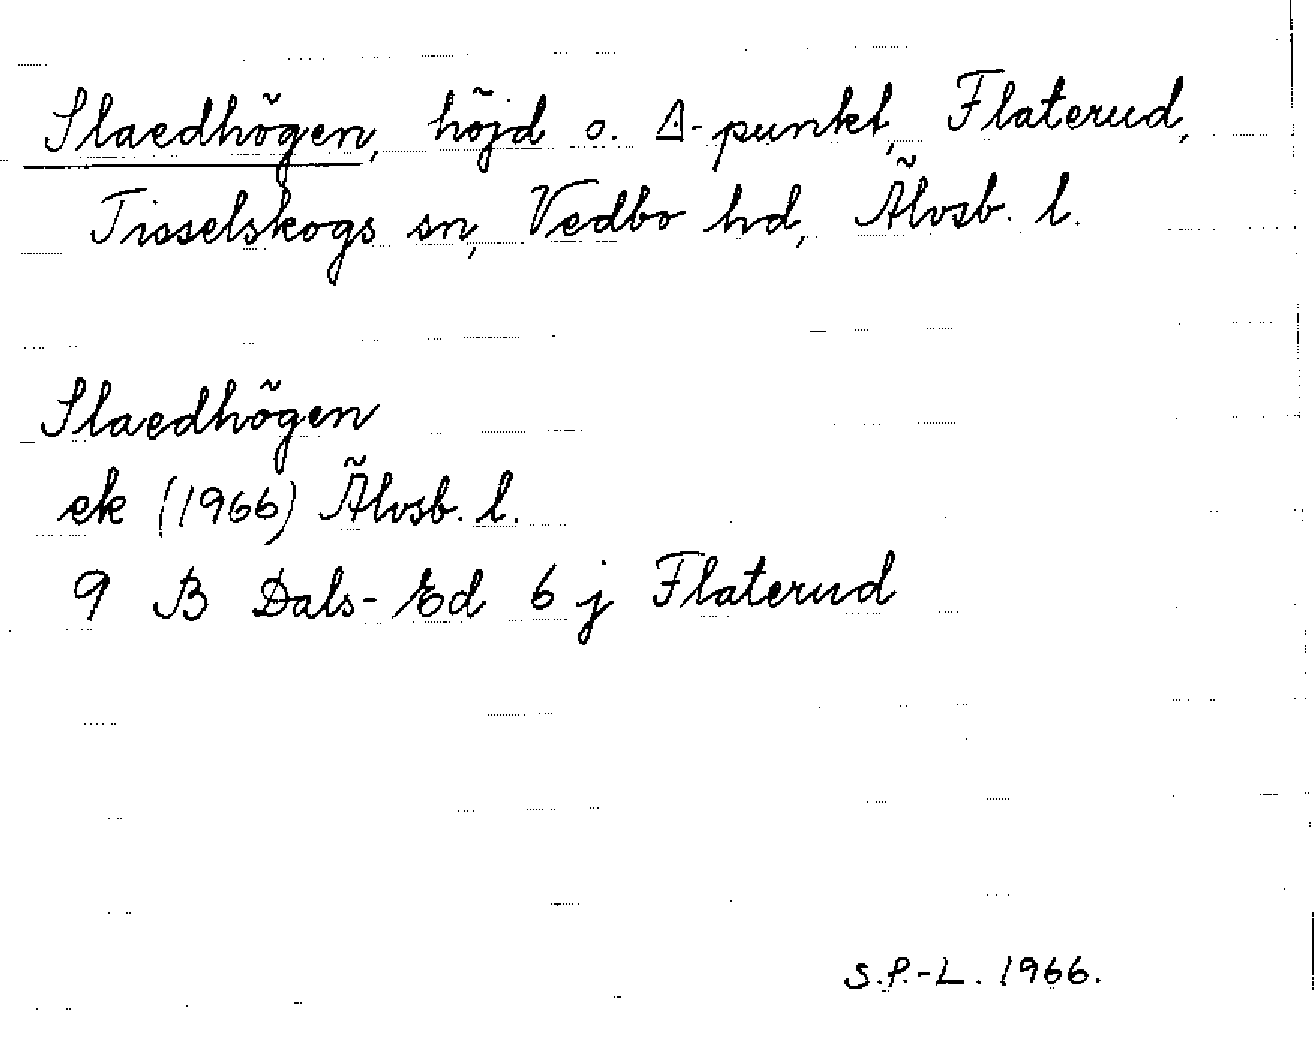 Slaedhögen, höjd o. Δ-punkt, Flaterud,
Tisselskogs sn, Vedbo hd, Älvsb. l.
Slaedhögen
ek (1966) Älvsb. l.
9 B Dals-Ed 6 j Flaterud
S.P.-L. 1966.